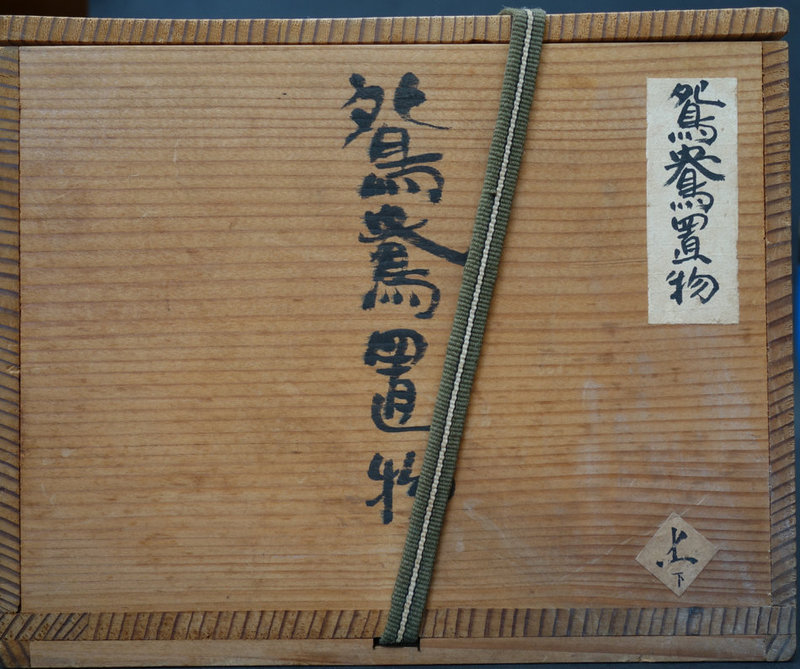 鴛鴦置物
鴛鴦置物
下